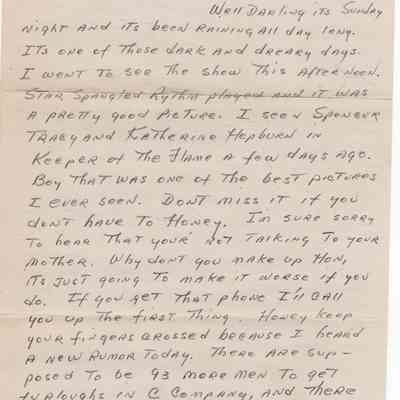 Well Darling its Sunday
night and its been raining all day long.
Its one of those dark and dreary days.
I went to see the show this afternoon.
Star Spangled Rythm played and it was
a pretty good picture. I seen Spencer
Tracy and Katherine Hepburn in
Keeper of the Flame a few days ago.
Boy that was one of the best pictures
I ever seen. Dont miss it if you
dont have to Honey. I'm sure sorry
to hear that your not talking to your
mother. Why dont you make up Hon,
its just going to make it worse if you
do. If you get that phone I'll call
you up the first thing. Honey keep
your fingers crossed because I heard
a new rumor today. There are sup-
posed to be 93 more men to get
furloughs in C Company, and there